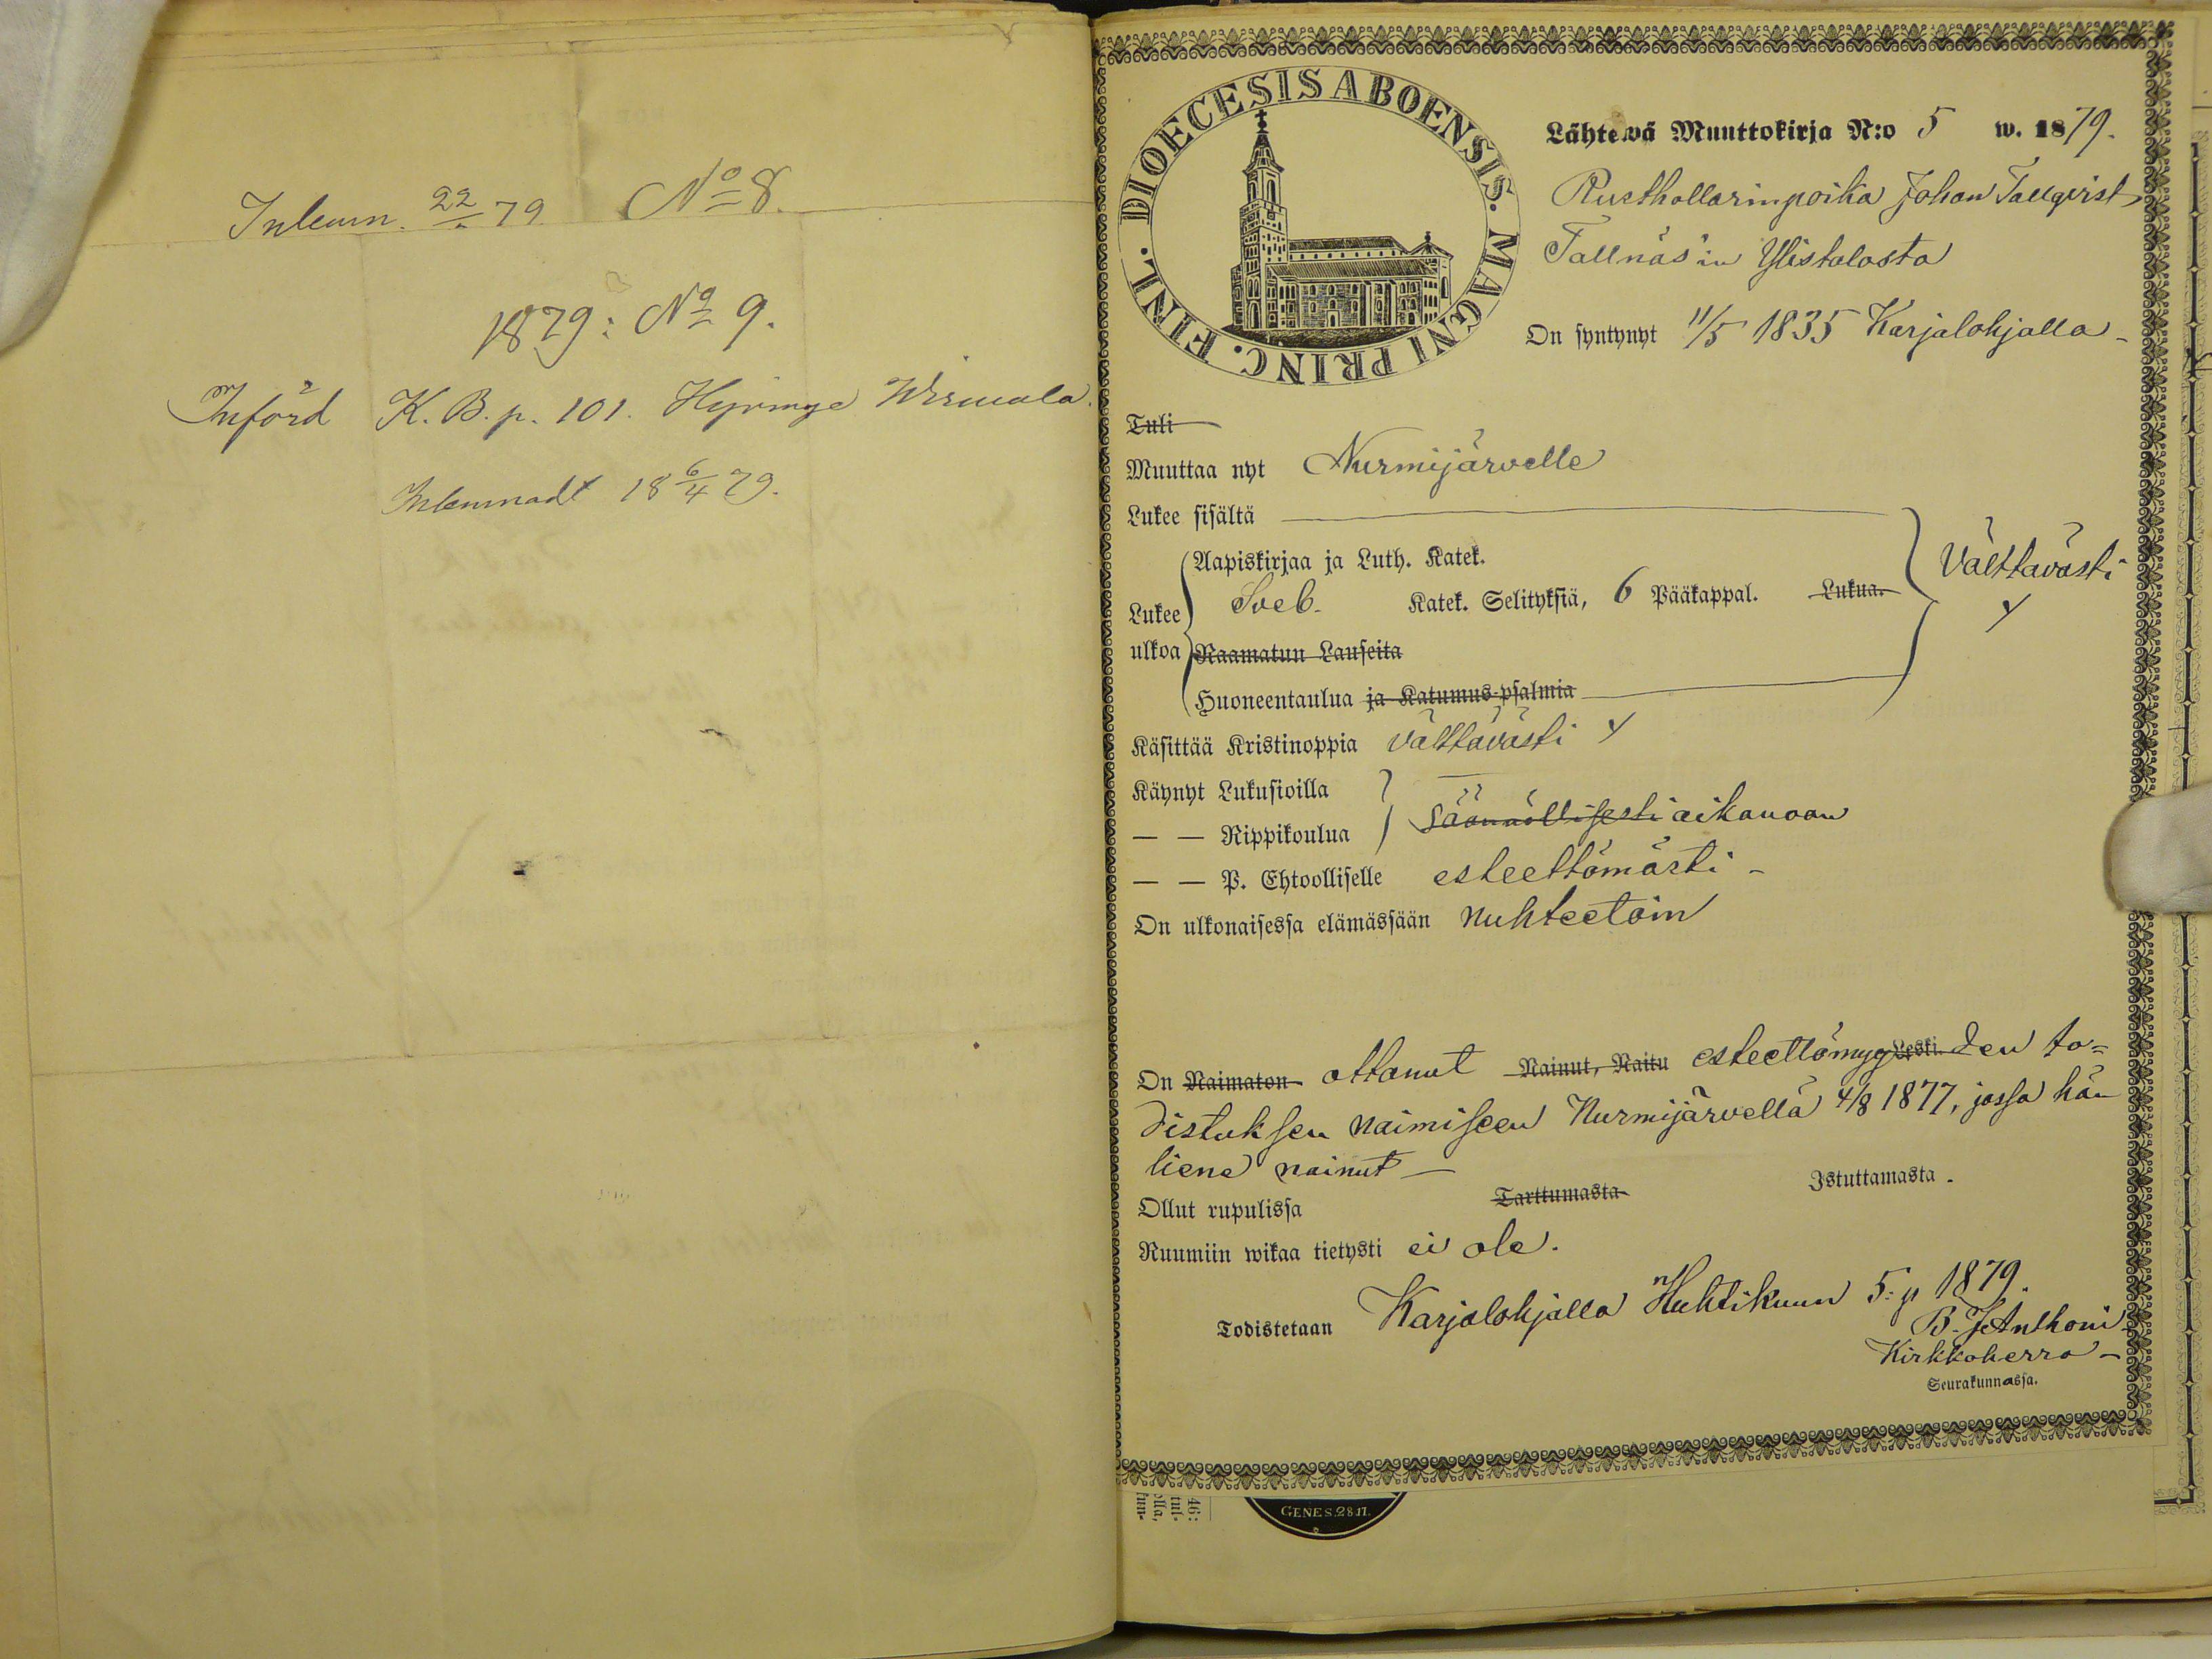 Inlemn. 22/ 79 No 8.
1879: No 9.
Införd K. B. p. 101. Hyvinge
Inlemnadt 18 6/4 79.
DIOECESIS ABOENSIS. MAGNI PRINC. FINL.
Lähtewä Muuttokirja N:o 5 w. 1879.
Rusthollarinpoika Johan Tallqvist
Tallnäs'in Ylistalosta
On syntynyt 11/5 1835 Karjalohjalla -
Tuli
Muuttaa nyt Nurmijärvelle
Lukee sisältä
Aapiskirjaa ja Luth. Katek.
Välttävästi
Lukee ulkoa
Sveb. Katek. Selityksiä, 6 Pääkappal. Lukua.
Raamatun Lauseita
Huoneentaulua ja Katumus-psalmia
Käsittää Kristinoppia välttävästi
Käynyt Lukusioilla
— — Rippikoulua
säännöllisesti aikanaan
— — P. Ehtoolliselle esteettömästi -
On ulkonaisessa elämässään nuhteetoin
On Naimaton ottanut Nainut, Naitu esteettömyy Leski. den to=
distuksen naimiseen Nurmijärvellä 4/8 1877, jossa hän
liene nainut —
Ollut rupulissa Tarttumasta Istuttamasta.
Ruumiin wikaa tietysti ei ole.
Todistetaan Karjalohjalla Huhtikuun 5. p 1879.
B. F. Anthoni
Kirkkoherra —
Seurakunnassa.
46:
tul-
olla,
kun-
GENES. 28.17.